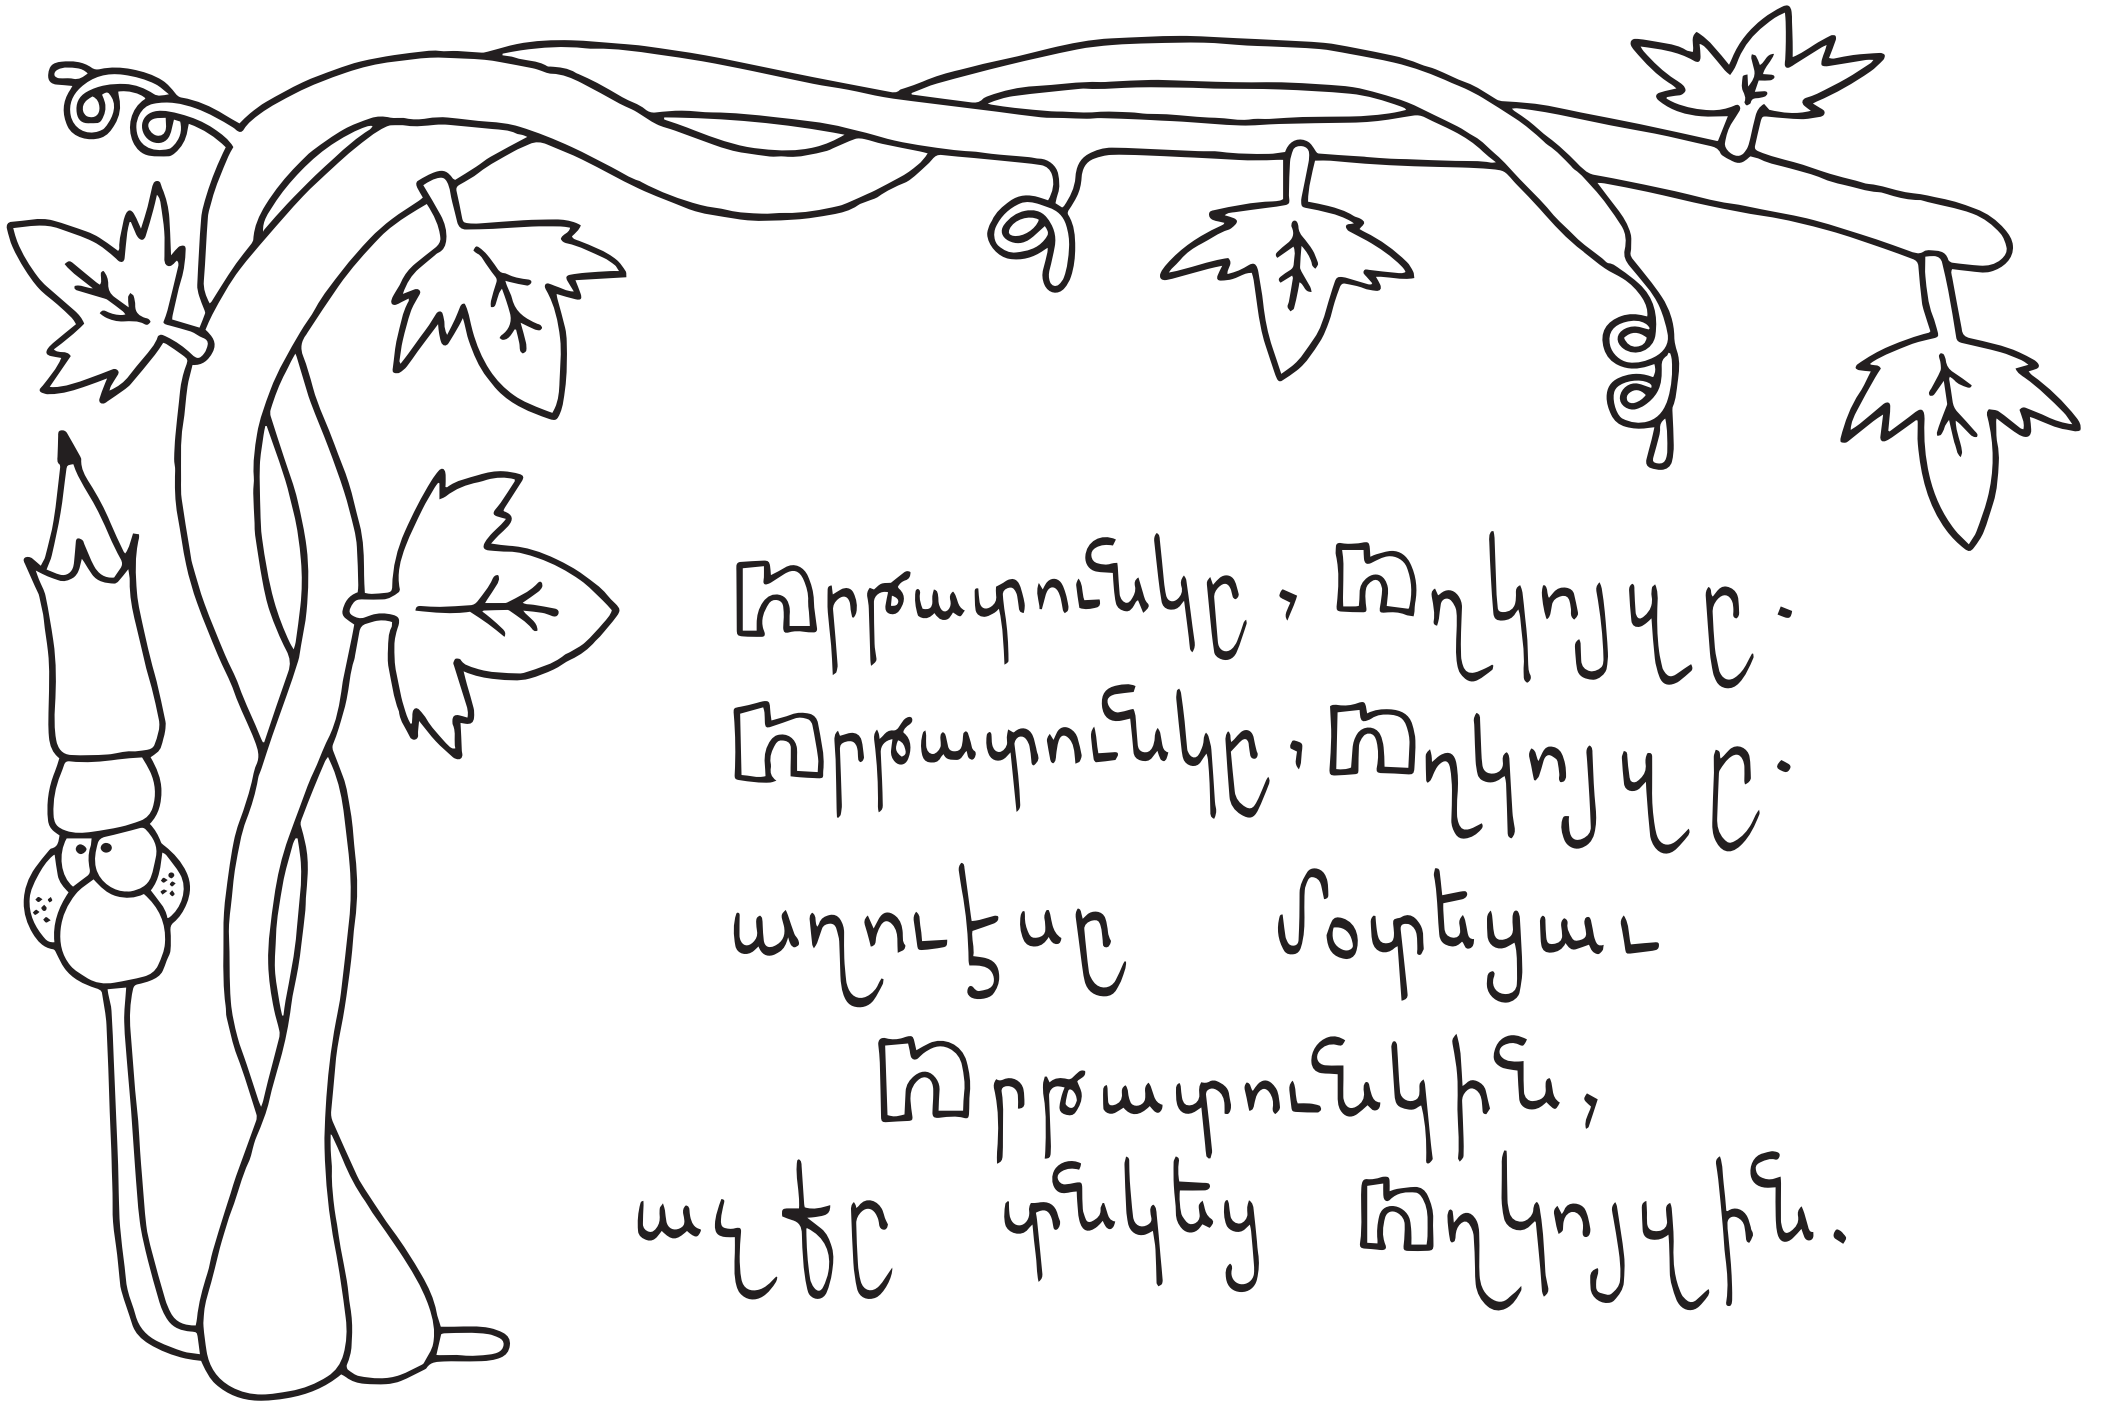 Որթատունկը, Ողկոյզը.
Որթատունկը, Ողկոյզը.
աղուէսը մօտեցաւ
Որթատունկին,
աչքը տնկեց Ողկոյզին.